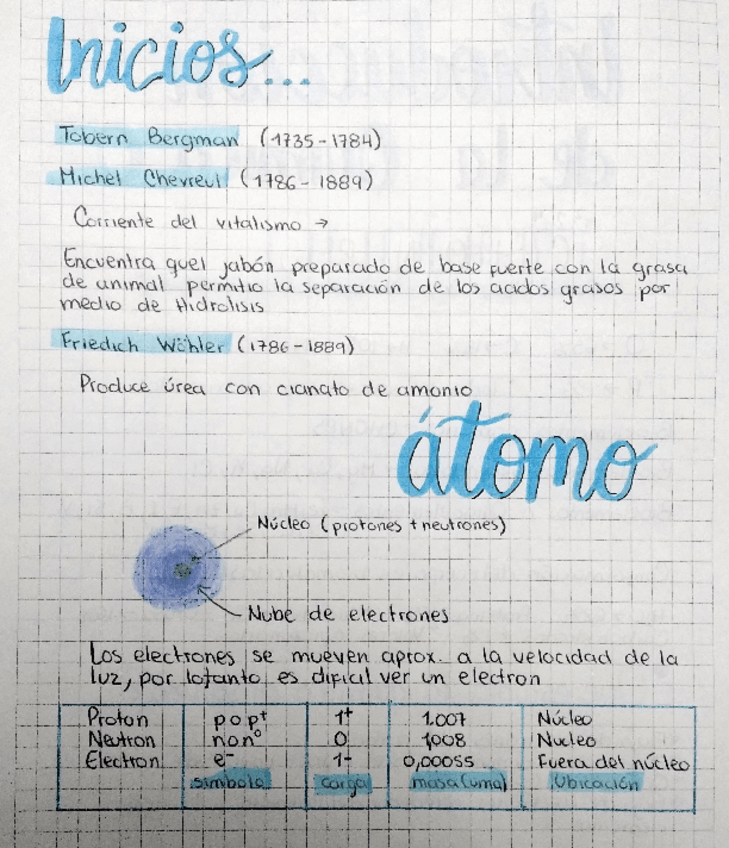 Inicios...
Tobern Bergman (1735-1784)
Michel Chevreul (1786-1889)
Corriente del vitalismo →
Encuentra quel jabón preparado de base fuerte con la grasa
de animal permitio la separación de los acidos grasos por
medio de Hidrolisis
Friedich Wöhler (1786-1889)
Produce úrea con cianato de amonio
átomo
Núcleo (protones + neutrones)
Nube de electrones
Los electrones se mueven aprox. a la velocidad de la
luz, por lotanto es dificil ver un electron
Proton p o p⁺ 1⁺ 1.007 Núcleo
Neutron n o n⁰ 0 1,008 Nucleo
Electron e⁻ 1- 0,00055 Fuera del núcleo
símbolo carga masa (uma) Ubicación